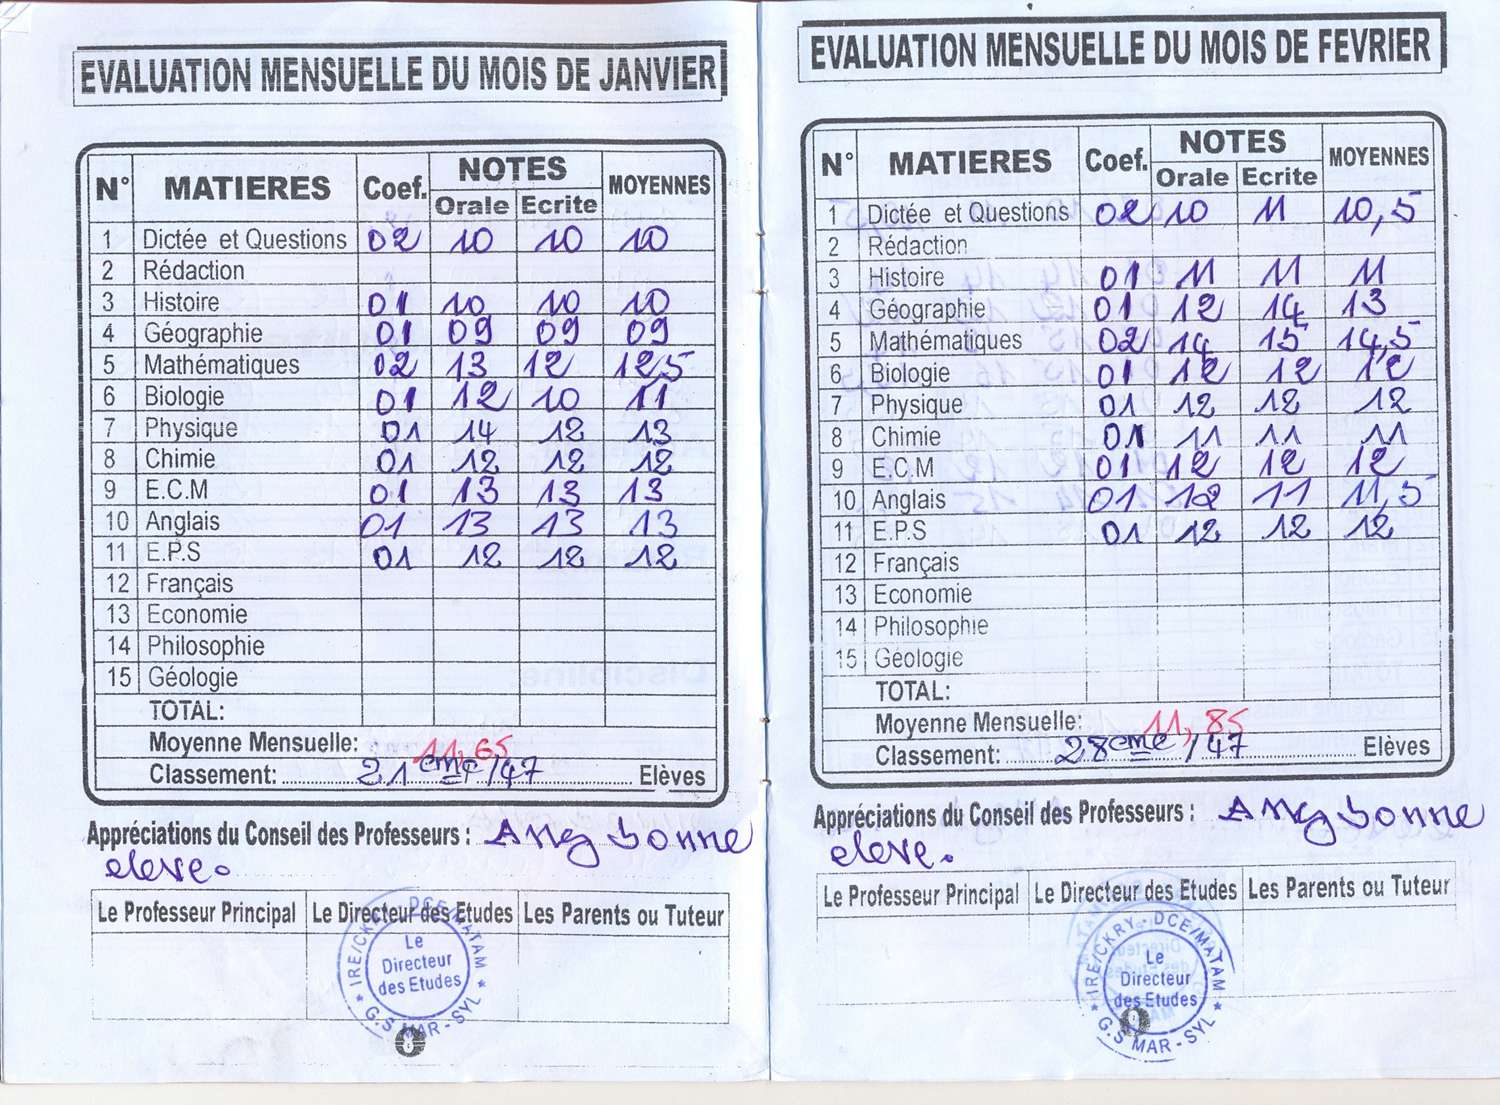 EVALUATION MENSUELLE DU MOIS DE JANVIER
N° MATIERES Coef. NOTES MOYENNES
Orale Ecrite
1 Dictée et Questions 02 10 10 10
2 Rédaction
3 Histoire 01 10 10 10
4 Géographie 01 09 09 09
5 Mathématiques 02 13 12 12,5
6 Biologie 01 12 10 11
7 Physique 01 14 12 13
8 Chimie 01 12 12 12
9 E.C.M 01 13 13 13
10 Anglais 01 13 13 13
11 E.P.S 01 12 12 12
12 Français
13 Economie
14 Philosophie
15 Géologie
TOTAL:
Moyenne Mensuelle: 11,65
Classement: 21eme/47 Elèves
Appréciations du Conseil des Professeurs : Assez bonne
eleve.
Le Professeur Principal Le Directeur des Etudes Les Parents ou Tuteur
IRE/CKRY - DCE/MATAM
Le
Directeur
des Etudes
* G.S MAR - SYL *
8
EVALUATION MENSUELLE DU MOIS DE FEVRIER
N° MATIERES Coef. NOTES MOYENNES
Orale Ecrite
1 Dictée et Questions 02 10 11 10,5
2 Rédaction
3 Histoire 01 11 11 11
4 Géographie 01 12 14 13
5 Mathématiques 02 14 15 14,5
6 Biologie 01 12 12 12
7 Physique 01 12 12 12
8 Chimie 01 11 11 11
9 E.C.M 01 12 12 12
10 Anglais 01 12 11 11,5
11 E.P.S 01 12 12 12
12 Français
13 Economie
14 Philosophie
15 Géologie
TOTAL:
Moyenne Mensuelle: 11,85
Classement: 28eme/47 Elèves
Appréciations du Conseil des Professeurs : Assez bonne
eleve.
Le Professeur Principal Le Directeur des Etudes Les Parents ou Tuteur
IRE/CKRY - DCE/MATAM
Le
Directeur
des Etudes
* G.S MAR - SYL *